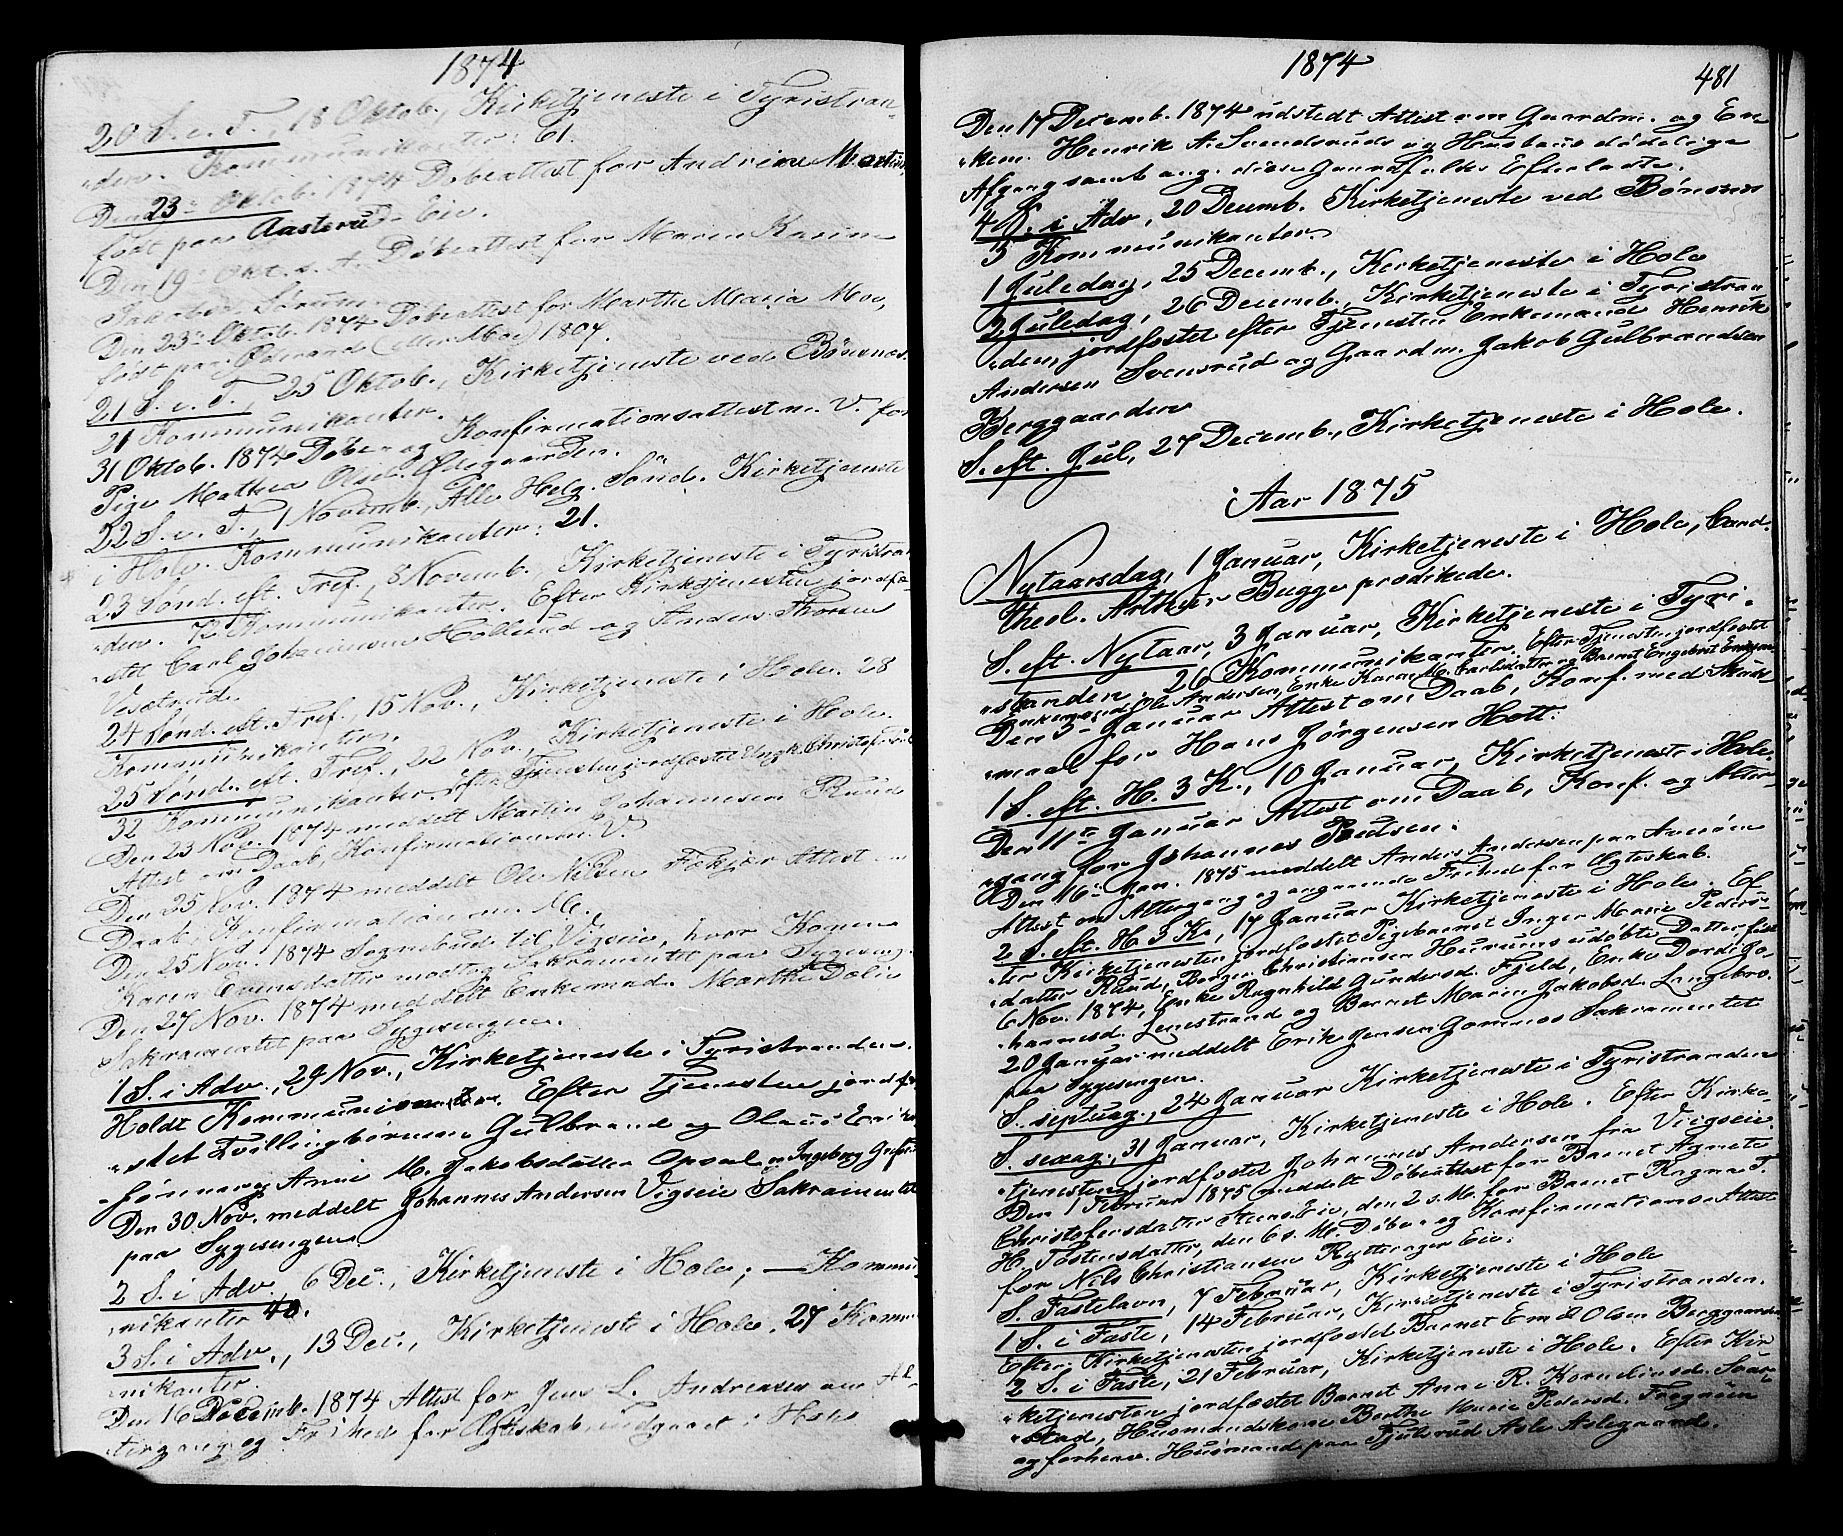 1874
20 S. e. T., 18 Oktob., Kirketjeneste i Tyristran-
den. Kommunikanter: 61.
Den 23de Oktob. 1874 Døbeattest for Andrine Martins,
født paa Aasterud Eie.
Den 19de Okt. s. A. Døbeattest for Maren Karine
Den 23de Oktob. 1874 Døbeattest for Marthe Maria Moe,
født paa (eller Moe) 1807.
21 S. e. T., 25 Oktob., Kirketjeneste ved Bønsnes.
21 Kommunikanter.
31 Oktob. 1874 Døbe- og Konfirmationsattest m. V. for
Pige Mathea Olsd. Ødegaarden.
22 S. e. T., 1 Novemb., Alle Helg. Sønd. Kirketjeneste
i Hole. Kommunikanter: 21.
23 Sønd. eft. Tref., 8 Novemb. Kirketjeneste i Tyristran
den. 72 Kommunikanter. Efter Kirketjenesten jordfæ-
stet Carl Johannesen Hollerud og Anders Thorsen
Vesetrud.
24 Sønd. eft. Tref., 15 Nov., Kirketjeneste i Hole. 28
Kommunikanter.
25 Sønd. eft. Tref., 22 Nov., Kirketjeneste i Hole.
32 Kommunikanter. Efter Tjenesten jordfæstet Ungk. Christofer
Den 23 Nov. 1874 meddelt Martin Johannesen Ruud
Attest om Daab, Konfirmation m. V.
Den 25 Nov. 1874 meddelt Ole Nilsen Attest om
Daab, Konfirmation m. M.
Den 25 Nov. 1874 Sognebud til Vigseie, hvor Konen
Karen Evensdatter modtog Sakramentet paa Sygeseng.
Den 27 Nov. 1874 meddelt Enkemad. Marthe Dæli
Sakramentet paa Sygesengen.
1 S. i Adv., 29 Nov., Kirketjeneste i Tyristranden.
Holdt Kommunion. Efter Tjenesten jordfæ
stet Tvillingbørnene Gulbrand og Olaus Erik
sønner og Anne M. Jakobsdatter Opsal og Ingeborg
Den 30 Nov. meddelt Johannes Andersen Vigseie Sakramentet
paa Sygesengen.
2 S. i Adv., 6 Dec., Kirketjeneste i Hole; — Kommu
nikanter 40.
3 S. i Adv., 13 Dec., Kirketjeneste i Hole. 27 Kommu
nikanter.
Den 16 Decemb. 1874 Attest for Jens L. Andreasen om Al-
tergang og Frihed for Ægteskab, udgaaet i Hole
1874
481
Den 17 Decemb. 1874 udstedt Attest om Gaardm. og En-
kem. Henrik A. Svendsruds og Hustrus dødelige
Afgang samt ang. disse Gaardfolks Efterladte.
4 S. i Adv., 20 Decemb. Kirketjeneste ved Bønsnes
5 Kommunikanter.
1 Juledag, 25 Decemb., Kirketjeneste i Hole
2 Juledag, 26 Decemb., Kirketjeneste i Tyristran
den, jordfæstet efter Tjenesten Enkemand Henrik
Andersen Svensrud og Gaardm. Jakob Gulbrandsen
Berggaarden
S. eft. Jul, 27 Decemb., Kirketjeneste i Hole.
Aar 1875
Nytaarsdag, 1 Januar, Kirketjeneste i Hole, Cand.
theol. Arthur Bugge prædikede.
S. eft. Nytaar, 3 Januar, Kirketjeneste i Tyri-
stranden. 26 Kommunikanter. Efter Tjenesten jordfæstet
Enkemand Ole Andersen, Enke Karen M. Carlsdatter og Barnet Engebret
Den 5te Januar Attest om Daab, Konf. med Skuds-
maal for Hans Jørgensen Hott.
1 S. eft. H. 3 K., 10 Januar, Kirketjeneste i Hole.
Den 11te Januar Attest om Daab, Konf. og Alter-
gang for Johannes Poulsen.
Den 16de Jan. 1875 meddelt Anders Andersen paa
Attest om Altergang og angaaende Frihed for Ægteskab.
2 S. eft. H. 3 K., 17 Januar Kirketjeneste i Hole. Ef
ter Kirketjenesten jordfæstet Pigebarnet Inger Marie Peders-
datter Ruud, Borger Christiansen Hurums udøbte Datter født
6 Nov. 1874, Enke Ragnhild Gundersd. Fjeld, Enke Dordi Jo-
hannesd. Lenestrand og Barnet Maren Jakobsd. Langebro.
20 Januar meddelt Erik Jensen Gommes Sakramentet
paa Sygesengen.
S. septuag., 24 Januar Kirketjeneste i Tyristranden
S. sexag., 31 Januar, Kirketjeneste i Hole. Efter Kirke-
tjenesten jordfæstet Johannes Andersen fra Vigseie.
Den 1 Februar 1875 meddelt Døbeattest for Barnet Agnete
Christofersdatter Steens Eie, den 2 s. M. for Barnet Ragna T.
H. Tostensdatter, den 6 s. M. Døbe- og Konfirmations-Attest
for Nils Christiansen Rytterager Eie.
S. Fastelavn, 7 Februar, Kirketjeneste i Hole
1 S. i Faste, 14 Februar, Kirketjeneste i Tyristranden.
Efter Kirketjenesten jordfæstet Barnet Emil Olsen Berggaarden
2 S. i Faste, 21 Februar, Kirketjeneste i Hole. Efter Kir
ketjenesten jordfæstet Barnet Anne R. Kornelinsd.
stad, Husmandskone Berthe Marie Pedersd.
og forhenv. Husmand paa Fjulsrud Asle Aslegaard.